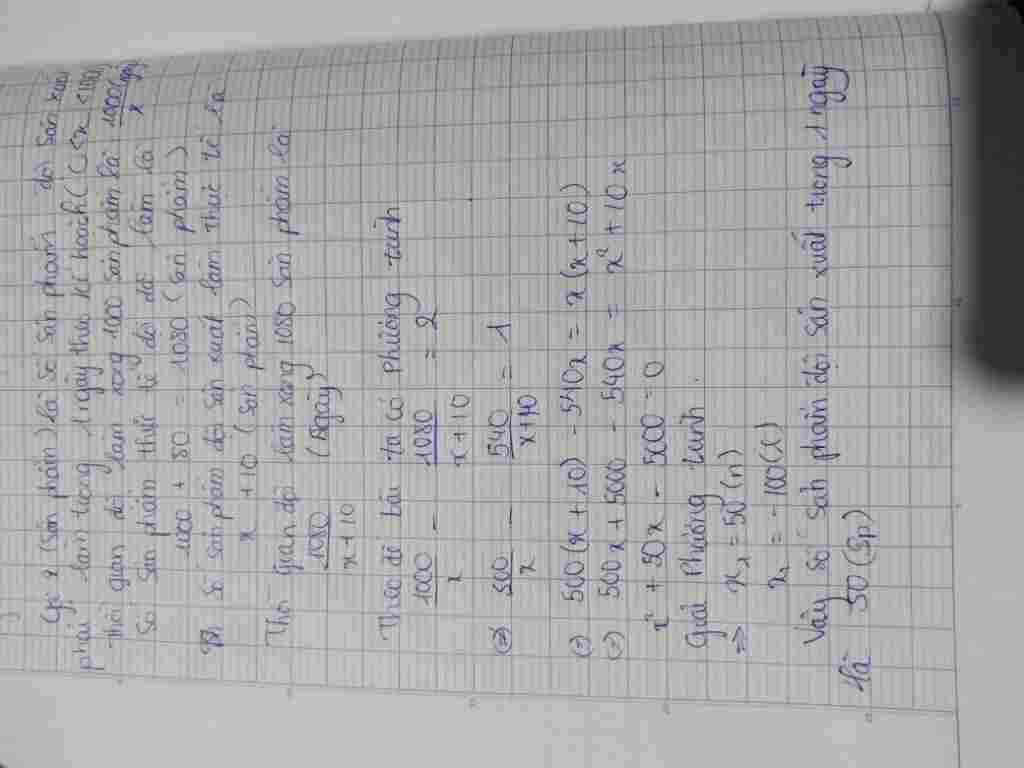 Gọi x (sản phẩm) là số sản phẩm đội sản xuất
phải làm trong 1 ngày theo kế hoạch (
Thời gian đội làm xong 1000 sản phẩm là 1000/x (ngày)
Số sản phẩm thực tế đội đó làm là
1000 + 80 = 1080 (sản phẩm)
Số sản phẩm đội sản xuất làm thực tế là
x + 10 (sản phẩm)
Thời gian đội làm xong 1080 sản phẩm là
1080/x+10 (Ngày)
Theo đề bài ta có phương trình
1000/x - 1080/x+10 = 2
(=) 500/x - 540/x+10 = 1
(=) 500(x+10) - 540x = x(x+10)
(=) 500x + 5000 - 540x = x² + 10x
x² + 50x - 5000 = 0
Giải phương trình
=> x₁ = 50 (n)
x₂ = -100 (x)
Vậy số sản phẩm đội sản xuất trong 1 ngày
là 50 (sp)